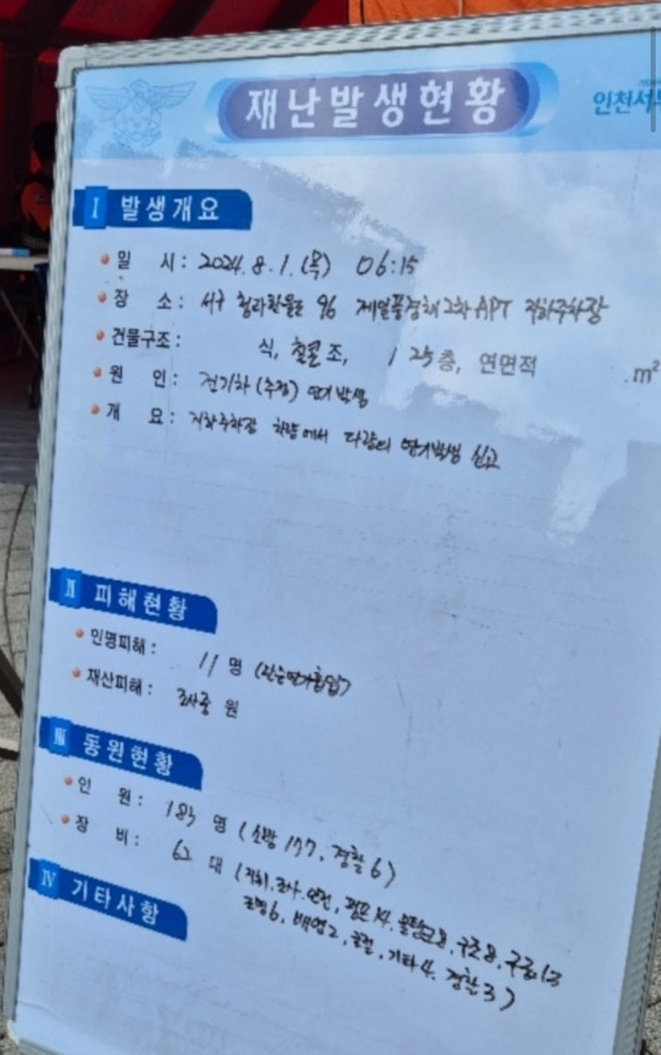 재난발생현황
인천서부
Ⅰ 발생개요
일 시: 2024. 8. 1. (목) 06:15
장 소: 서구 청라한울로 96 제일풍경채 2차 APT 지하주차장
건물구조: 식, 철콘조, / 25층, 연면적 .m²
원 인: 전기차 (추정) 연기 발생
개 요: 지하주차장 차량에서 다량의 연기발생 신고
Ⅱ 피해현황
인명피해: 11 명 (단순연기흡입)
재산피해: 조사중 원
Ⅲ 동원현황
인 원: 183 명 (소방 177, 경찰 6)
장 비: 62 대 (지휘, 조사, 안전, 펌프 14, 물탱크 8, 구조 8, 구급 13
조명 6, 배연 2, 굴절, 기타 4, 경찰 3)
Ⅳ 기타사항